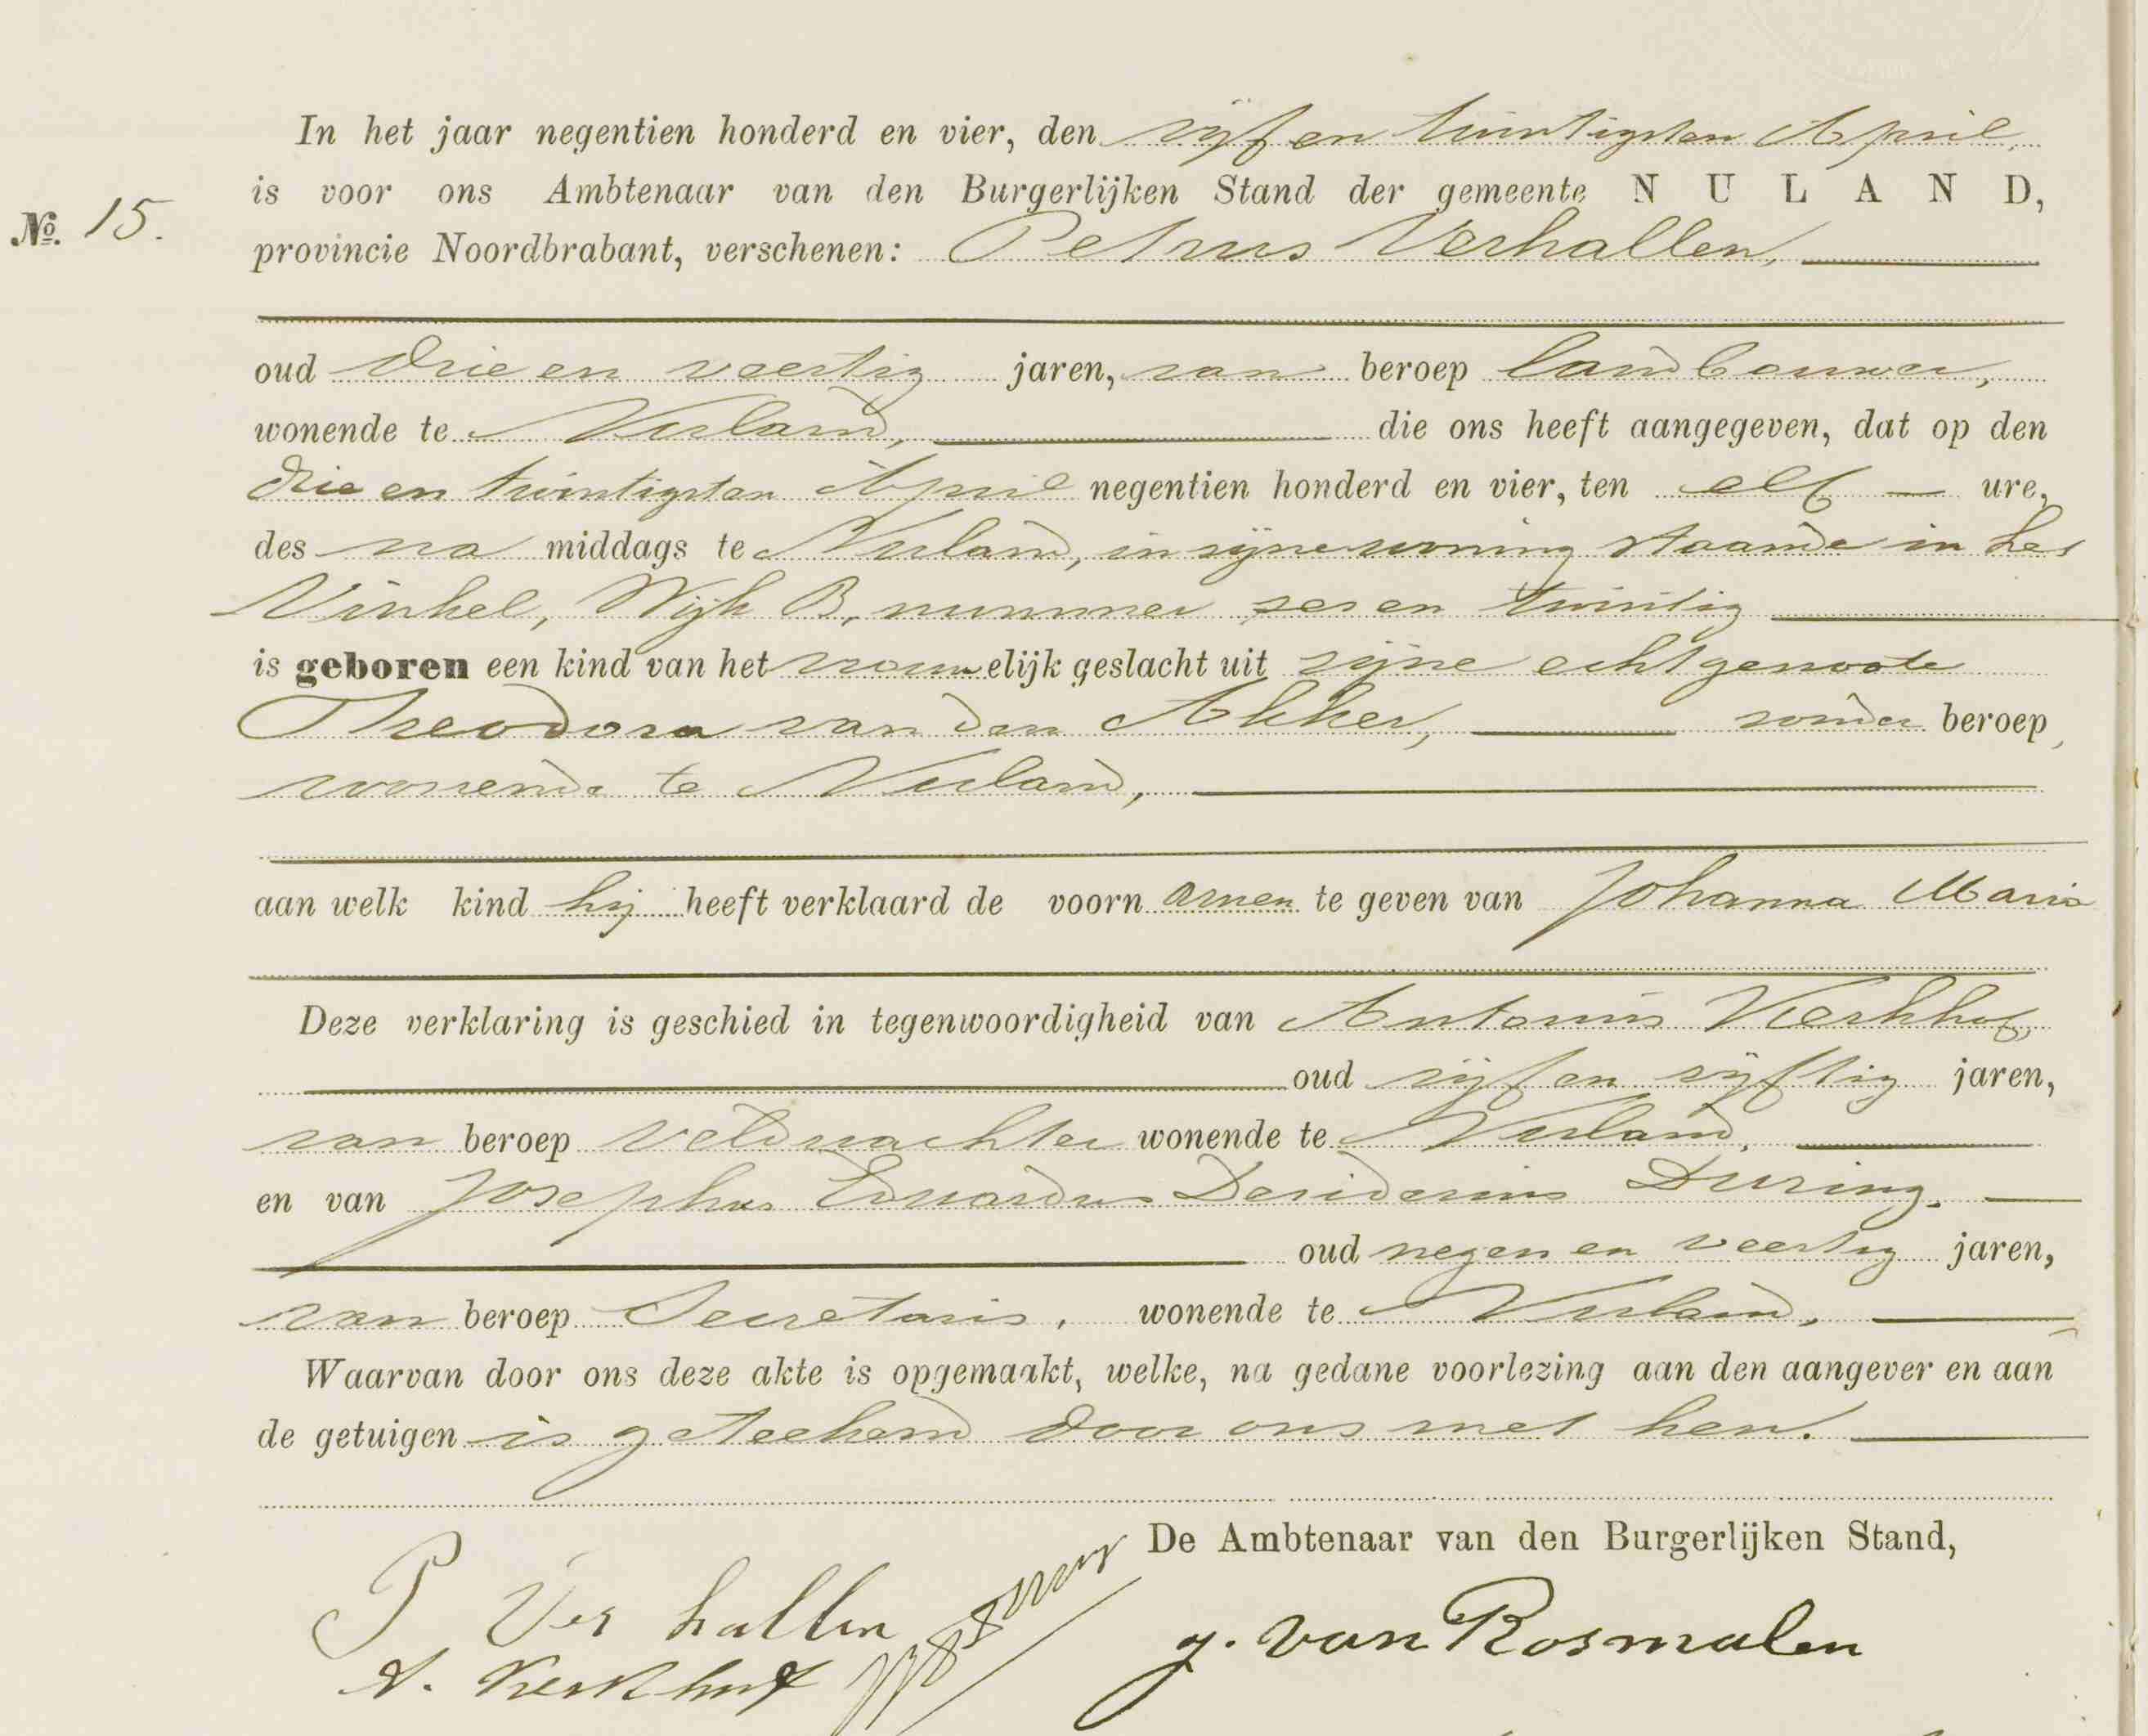 In het jaar negentien honderd en vier, den vijf en twintigsten April,
is voor ons Ambtenaar van den Burgerlijken Stand der gemeente NULAND,
No. 15.
provincie Noordbrabant, verschenen: Petrus Verhallen,
oud drie en veertig jaren, van beroep landbouwer,
wonende te Nuland, die ons heeft aangegeven, dat op den
drie en twintigsten April negentien honderd en vier, ten elf ure,
des na middags te Nuland, in zijne woning staande in het
Vinkel, Wijk B, nummer zes en twintig
is geboren een kind van het vrouwelijk geslacht uit zijne echtgenoote
Theodora van den Akker, zonder beroep,
wonende te Nuland,
aan welk kind hij heeft verklaard de voornamen te geven van Johanna Maria
Deze verklaring is geschied in tegenwoordigheid van Antonius Kerkhof,
oud vijf en vijftig jaren,
van beroep veldwachter wonende te Nuland,
en van Josephus Eduardus Desiderius During.
oud negen en veertig jaren,
van beroep Secretaris, wonende te Nuland,
Waarvan door ons deze akte is opgemaakt, welke, na gedane voorlezing aan den aangever en aan
de getuigen is geteekend door ons met hen.
De Ambtenaar van den Burgerlijken Stand,
P Verhallen
g. van Rosmalen
A. Kerkhof